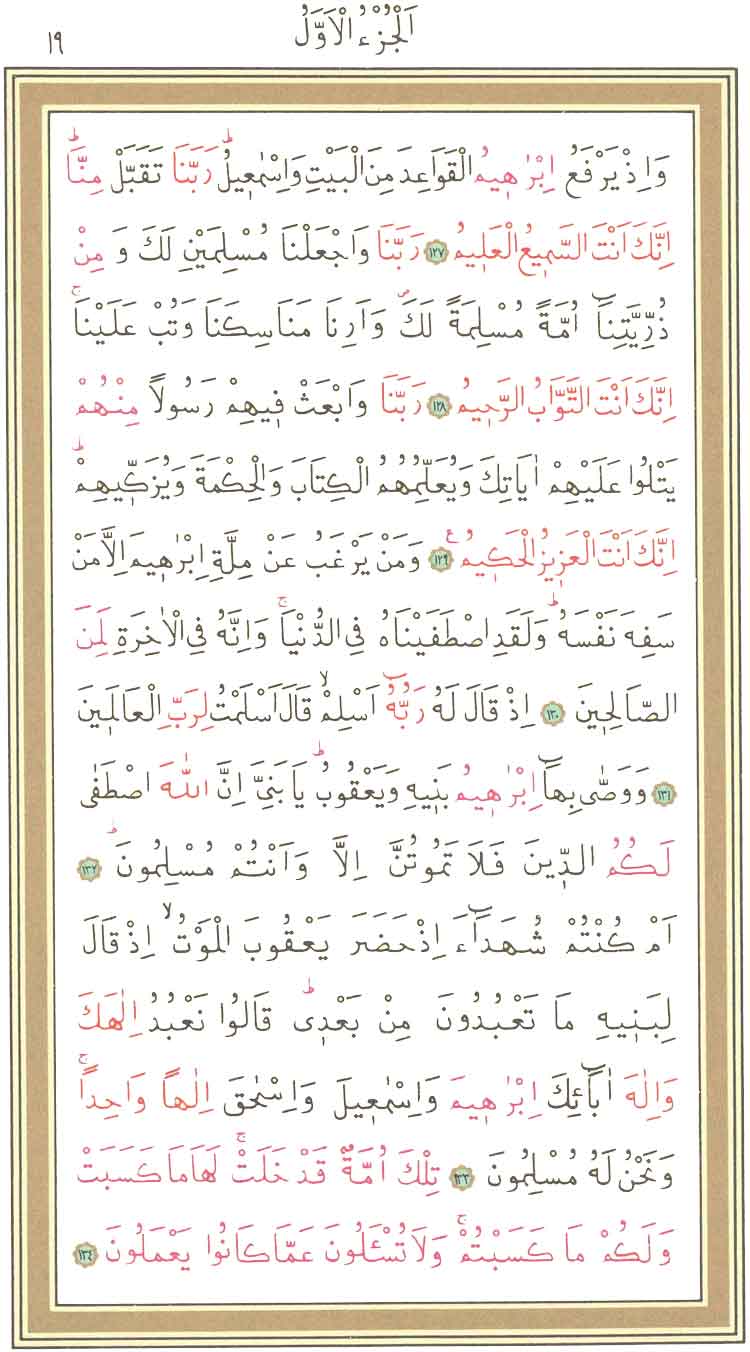 ١٩
اَلْجُزْءُ الْاَوَّلُ
وَاِذْ يَرْفَعُ اِبْرٰهٖيمُ الْقَوَاعِدَ مِنَ الْبَيْتِ وَاِسْمٰعٖيلُۜ رَبَّنَا تَقَبَّلْ مِنَّاۜ
اِنَّكَ اَنْتَ السَّمٖيعُ الْعَلٖيمُ ﴿١٢٧﴾ رَبَّنَا وَاجْعَلْنَا مُسْلِمَيْنِ لَكَ وَ مِنْ
ذُرِّيَّتِنَٓا اُمَّةً مُسْلِمَةً لَكَۖ وَاَرِنَا مَنَاسِكَنَا وَتُبْ عَلَيْنَاۚ
اِنَّكَ اَنْتَ التَّوَّابُ الرَّحٖيمُ ﴿١٢٨﴾ رَبَّنَا وَابْعَثْ فٖيهِمْ رَسُولاً مِنْهُمْ
يَتْلُوا عَلَيْهِمْ اٰيَاتِكَ وَيُعَلِّمُهُمُ الْكِتَابَ وَالْحِكْمَةَ وَيُزَكّٖيهِمْۜ
اِنَّكَ اَنْتَ الْعَزٖيزُ الْحَكٖيمُࣖ ﴿١٢٩﴾ وَمَنْ يَرْغَبُ عَنْ مِلَّةِ اِبْرٰهٖيمَ اِلَّا مَنْ
سَفِهَ نَفْسَهُۜ وَلَقَدِ اصْطَفَيْنَاهُ فِي الدُّنْيَاۚ وَاِنَّهُ فِي الْاٰخِرَةِ لَمِنَ
الصَّالِحٖينَ ﴿١٣٠﴾ اِذْ قَالَ لَهُ رَبُّهُٓ اَسْلِمْۙ قَالَ اَسْلَمْتُ لِرَبِّ الْعَالَمٖينَ
﴿١٣١﴾ وَوَصّٰى بِهَٓا اِبْرٰهٖيمُ بَنٖيهِ وَيَعْقُوبُۜ يَا بَنِيَّ اِنَّ اللّٰهَ اصْطَفٰى
لَكُمُ الدّٖينَ فَلَا تَمُوتُنَّ اِلَّا وَاَنْتُمْ مُسْلِمُونَۜ ﴿١٣٢﴾
اَمْ كُنْتُمْ شُهَدَٓاءَ اِذْ حَضَرَ يَعْقُوبَ الْمَوْتُۙ اِذْ قَالَ
لِبَنٖيهِ مَا تَعْبُدُونَ مِنْ بَعْدٖىۜ قَالُوا نَعْبُدُ اِلٰهَكَ
وَاِلٰهَ اٰبَٓائِكَ اِبْرٰهٖيمَ وَاِسْمٰعٖيلَ وَاِسْحٰقَ اِلٰهاً وَاحِداًۚ
وَنَحْنُ لَهُ مُسْلِمُونَ ﴿١٣٣﴾ تِلْكَ اُمَّةٌ قَدْ خَلَتْۚ لَهَا مَا كَسَبَتْ
وَلَكُمْ مَا كَسَبْتُمْۚ وَلَا تُسْـَٔلُونَ عَمَّا كَانُوا يَعْمَلُونَ ﴿١٣٤﴾